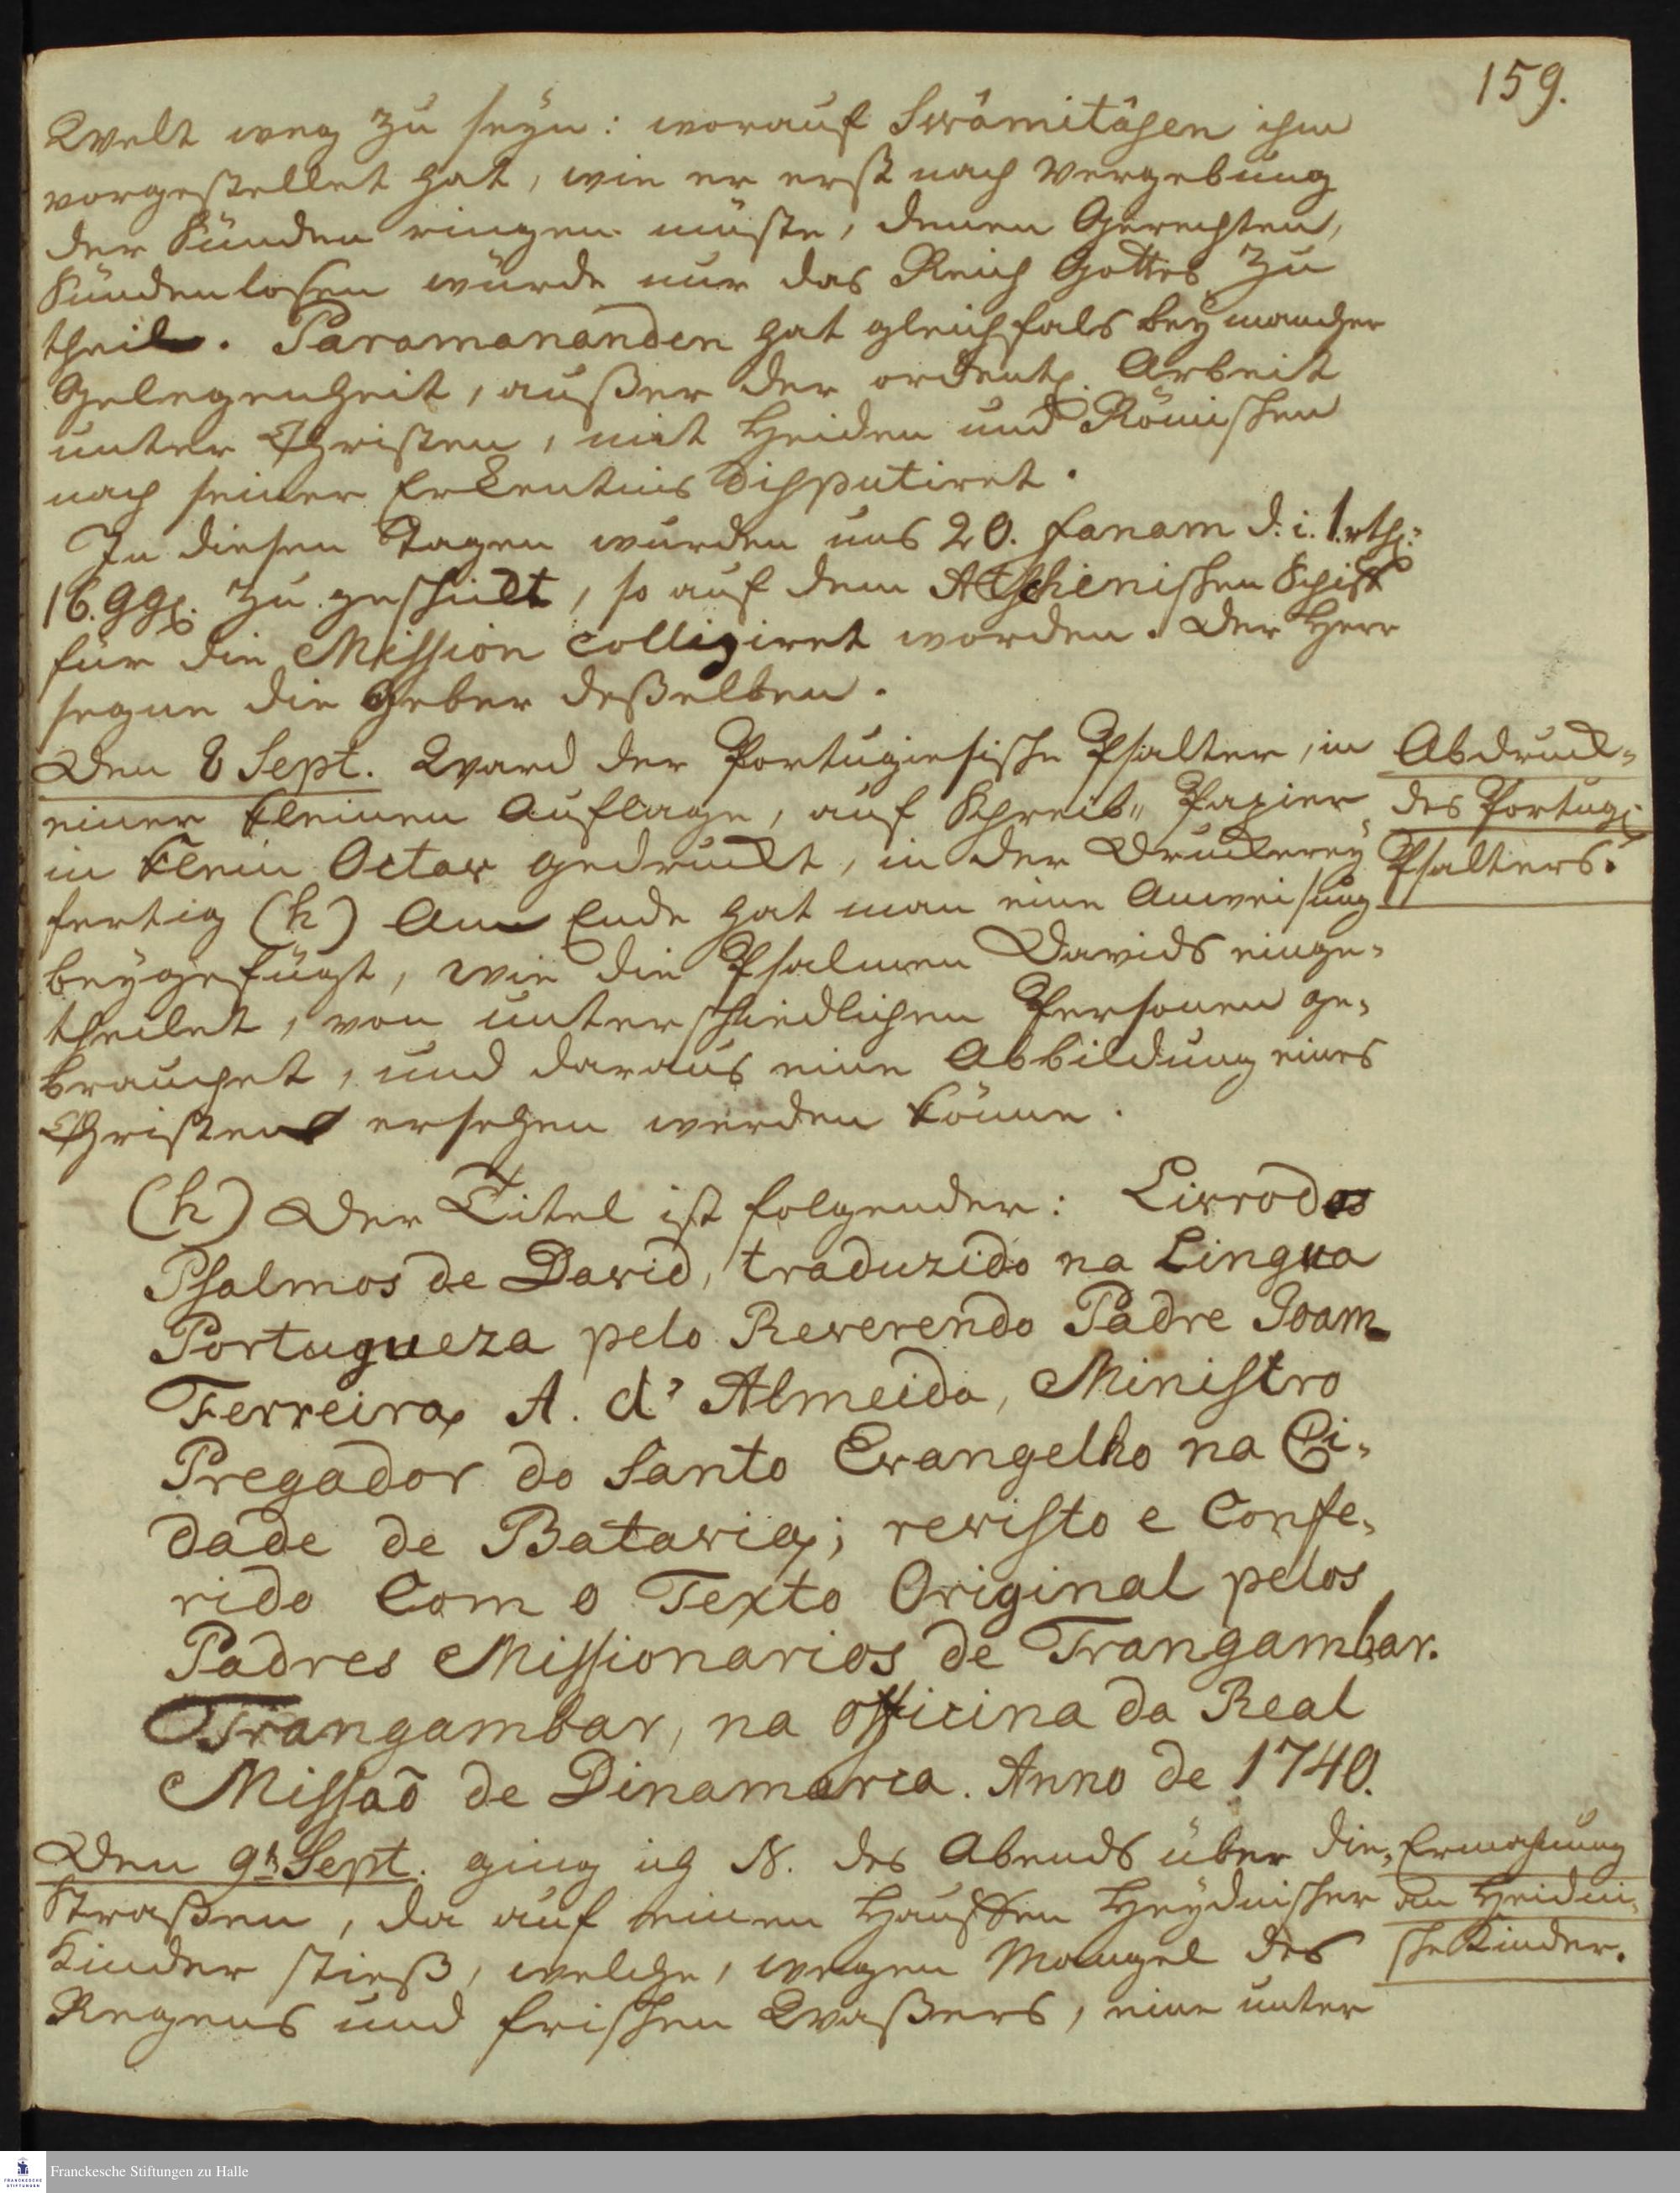 159.
Welt weg zu seyn: worauf Swâmitâsen ihm
vorgestellet hat, wie er erst nach Vergebung
der Sünden ringen müste, denen Gerechten,
Sündenlosen würde nur das Reich Gottes zu
theil. Paramananden hat gleichfals bey mancher
Gelegenheit, außer der ordentl. Arbeit
unter Christen, mit Heiden und Römischen
nach seiner Erkentnis disputiret.
In diesen Tagen wurden uns 20. fanam d. i. 1. rthl.
16. ggl. zu geschickt, so auf dem Atschinischen Schiff
für die Mission colligiret worden. Der Herr
segne die Geber deßelben.
Den 8 Sept. Ward der Portugiesische Psalter, in
einer kleinen Auflage, auf Schreib- Papier
in klein Octav gedruckt, in der Druckerey
fertig (h) Am Ende hat man eine Anweisung
beygefügt, wie die Psalmen Davids einge-
theilet, von unterschiedlichen Personen ge-
brauchet, und daraus eine Abbildung eines
Christen ersehen werden könne.
Abdruck
des Portug.
Psalters.
(h) Der Titel ist folgender: Livro dos
Psalmos de David, traduzido na Lingua
Portugueza pelo Reverendo Padre Joam
Ferreira A. d' Almeida, Ministro
Pregador do Santo Evangelho na Ci-
dade de Batavia; revisto e Confe-
rido Com o Texto Original pelos
Padres Missionarios de Trangambar.
Trangambar, na officina da Real
Missaõ de Dinamarca. Anno de 1740.
Den 9t Sept. ging ich N. des Abends über die
Straßen, da auf einen Hauffen Heydnischer
Kinder stieß, welche, wegen Mangel des
Regens und frischen Waßers, eine unter
Ermahnung
an Heidni-
sche Kinder.
Franckesche Stiftungen zu Halle